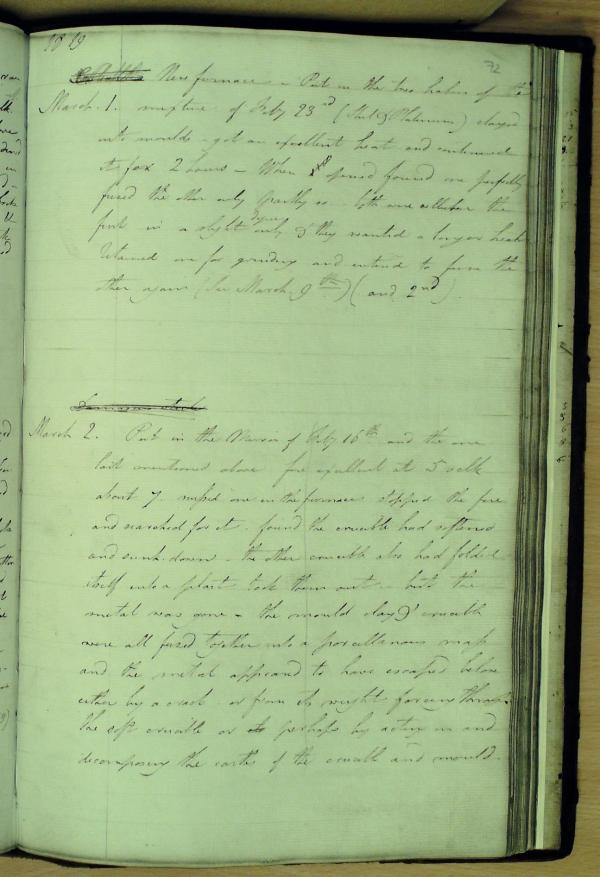 1819
72
New furnace - Put in the two halves of the
March. 1. mixture of Feby 23rd (Steel & Platinum) clayed
into moulds - got an excellent heat and continued
it for 2 hours - When opened found one perfectly
fused the other only partly so - both one the
first in a slight degree only & they wanted a longer heat
Retained one for grinding and intend to fuse the
other again (See March 9th) (and 2nd)
March 2. Put in the of Feby 16th and the one
last mentioned above fire excellent at 5 oclk
about 7 missed one in the furnace Stopped the fire
and searched for it. found the crucible had softened
and sunk down - the other crucible also had folded
itself into a took them out - but the
metal was gone - the mould clay & crucible
were all fused together into a porcellanous mass
and the metal appeared to have escaped below
either by a crack or from its weight forcing through
the soft crucible or perhaps by acting on and
decomposing the earths of the crucible and mould.